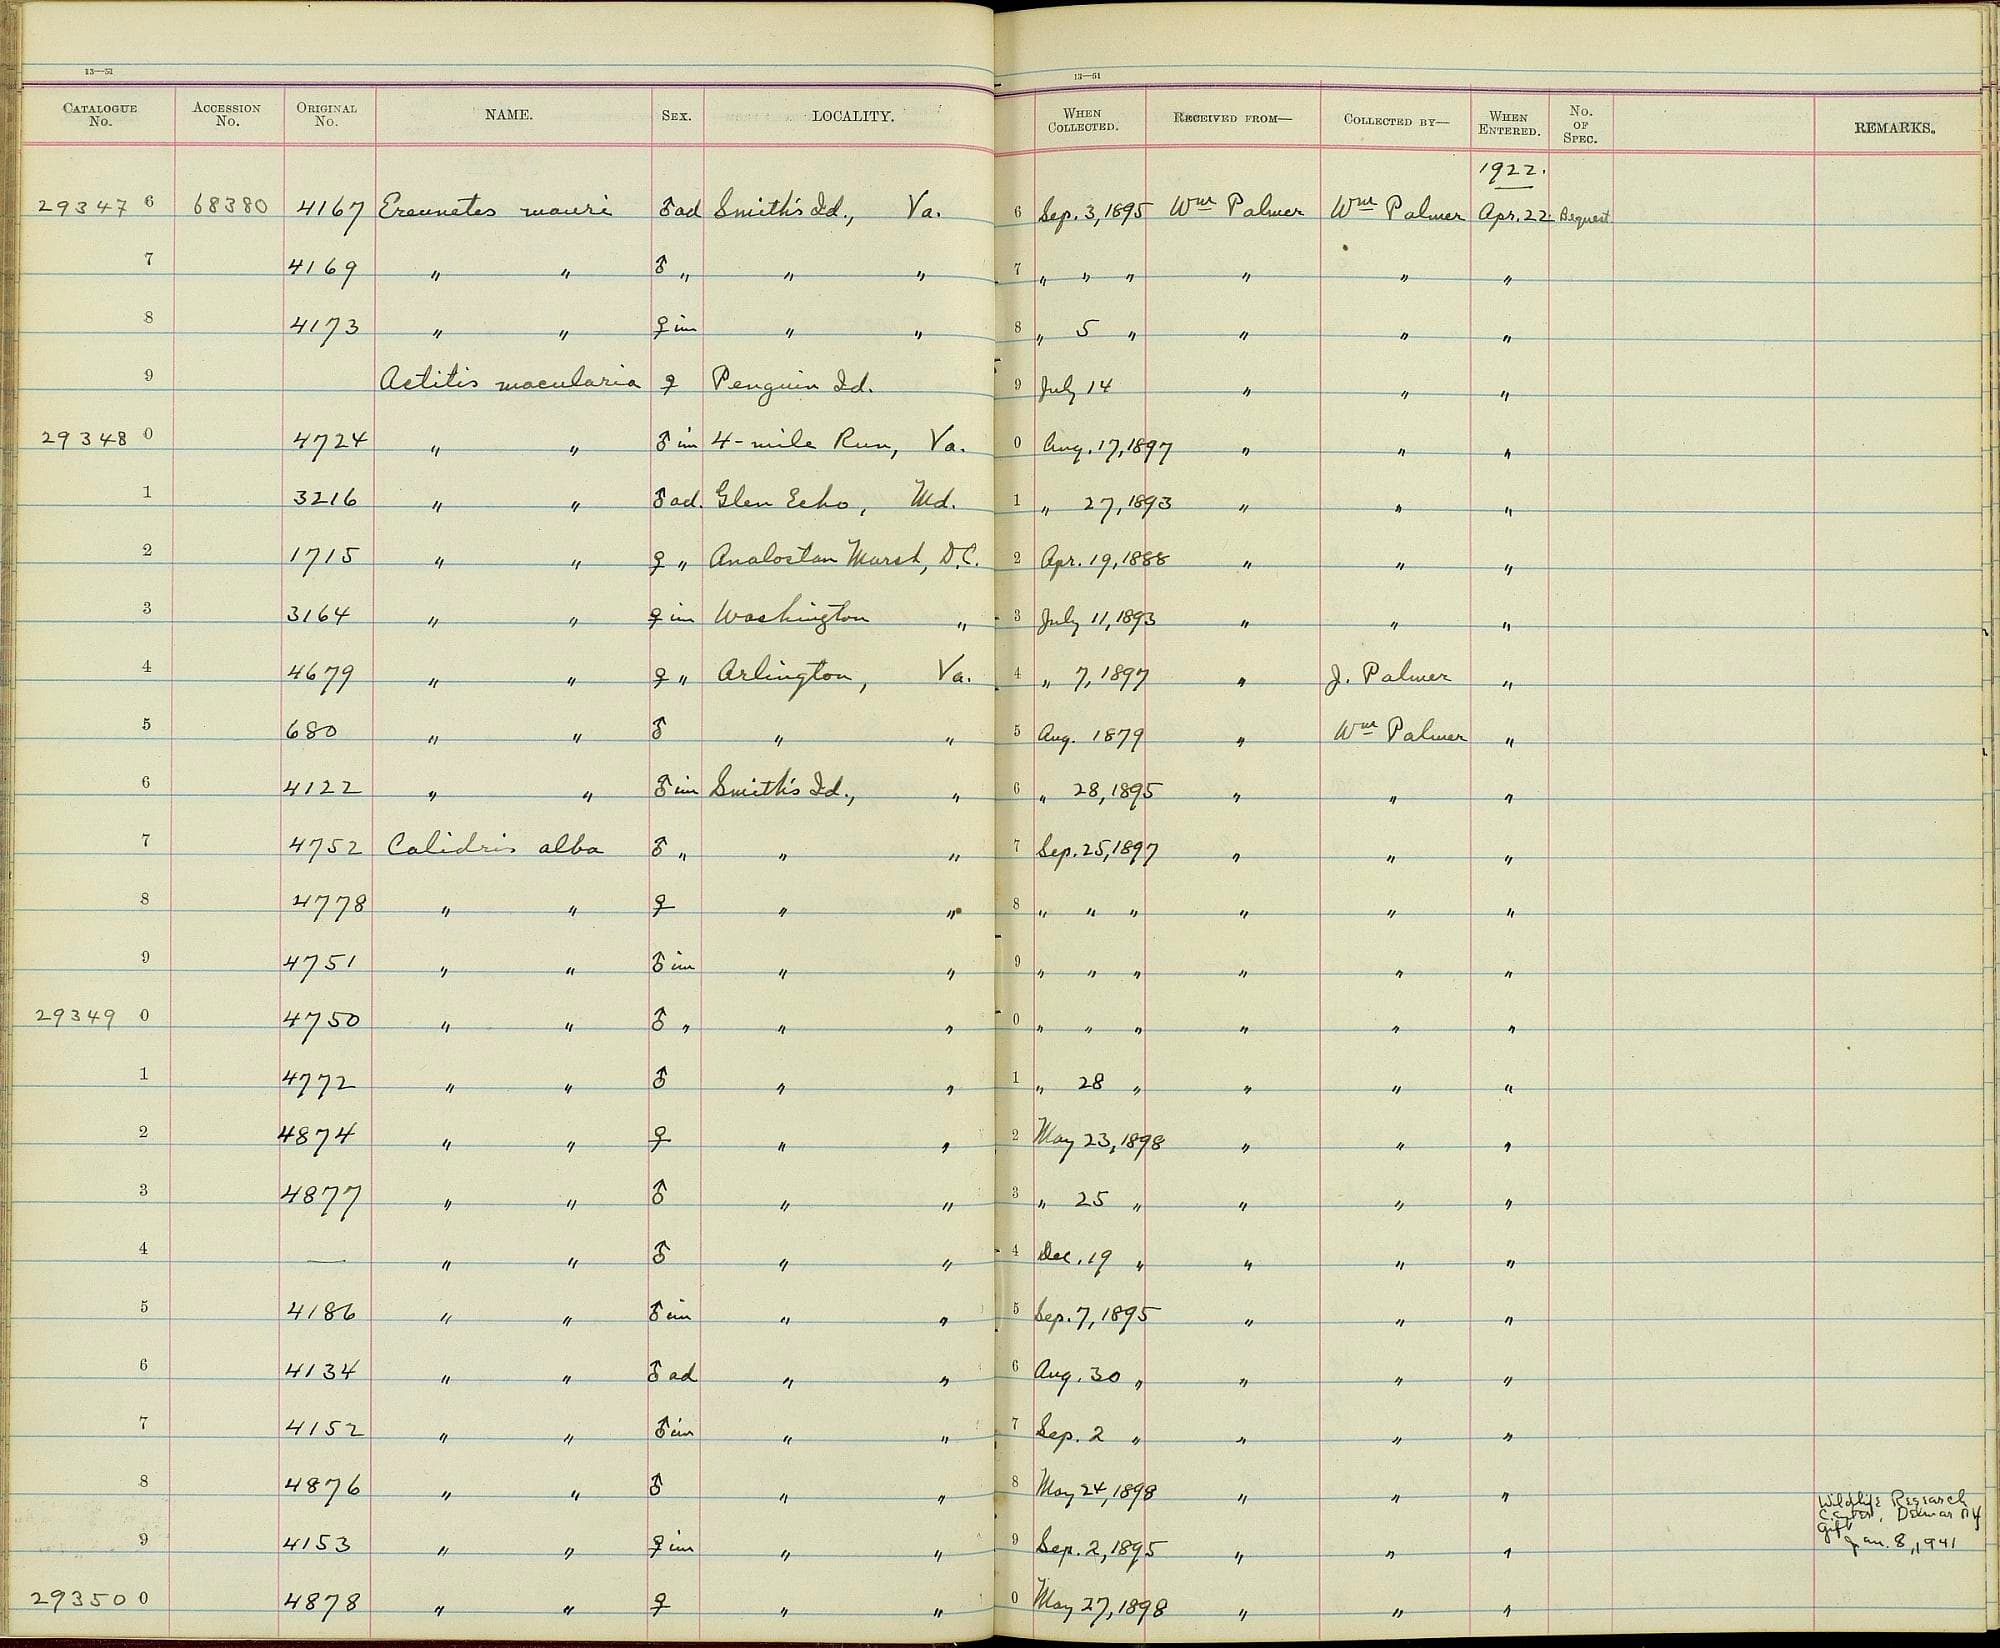 13—51 13—51
CATALOGUE No. ACCESSION No. ORIGINAL No. NAME. SEX. LOCALITY. WHEN COLLECTED. RECEIVED FROM— COLLECTED BY— WHEN ENTERED. No. OF SPEC. REMARKS.
1922.
29347 6 68380 4167 Ereunetes mauri ♂ ad Smith's Id., Va. 6 Sep. 3, 1895 Wm Palmer Wm Palmer Apr. 22. Bequest
7 4169 " " ♂ " " " 7 " " " " " "
8 4173 " " ♀ im " " 8 " 5 " " " "
9 Actitis macularia ♀ Penguin Id. 9 July 14 " " "
29348 0 4724 " " ♂ im 4-mile Run, Va. 0 Aug. 17, 1897 " " "
1 3216 " " ♂ ad. Glen Echo, Md. 1 " 27, 1893 " " "
2 1715 " " ♀ " Analostan Marsh, D.C. 2 Apr. 19, 1888 " " "
3 3164 " " ♀ im Washington " 3 July 11, 1893 " " "
4 4679 " " ♀ " Arlington, Va. 4 " 7, 1897 " J. Palmer "
5 680 " " ♂ " " 5 Aug. 1879 " Wm Palmer "
6 4122 " " ♂ im Smith's Id., " 6 " 28, 1895 " " "
7 4752 Calidris alba ♂ " " " 7 Sep. 25, 1897 " " "
8 4778 " " ♀ " " 8 " " " " " "
9 4751 " " ♂ im " " 9 " " " " " "
29349 0 4750 " " ♂ " " " 0 " " " " " "
1 4772 " " ♂ " " 1 " 28 " " " "
2 4874 " " ♀ " " 2 May 23, 1898 " " "
3 4877 " " ♂ " " 3 " 25 " " " "
4 — " " ♂ " " 4 Dec. 19 " " " "
5 4186 " " ♂ im " " 5 Sep. 7, 1895 " " "
6 4134 " " ♂ ad " " 6 Aug. 30 " " " "
7 4152 " " ♂ im " " 7 Sep. 2 " " " "
8 4876 " " ♂ " " 8 May 24, 1898 " " "
Wildlife Research
Center, Delmar NY
Gift
Jan. 8, 1941
9 4153 " " ♀ im " " 9 Sep. 2, 1895 " " "
29350 0 4878 " " ♀ " " 0 May 27, 1898 " " "